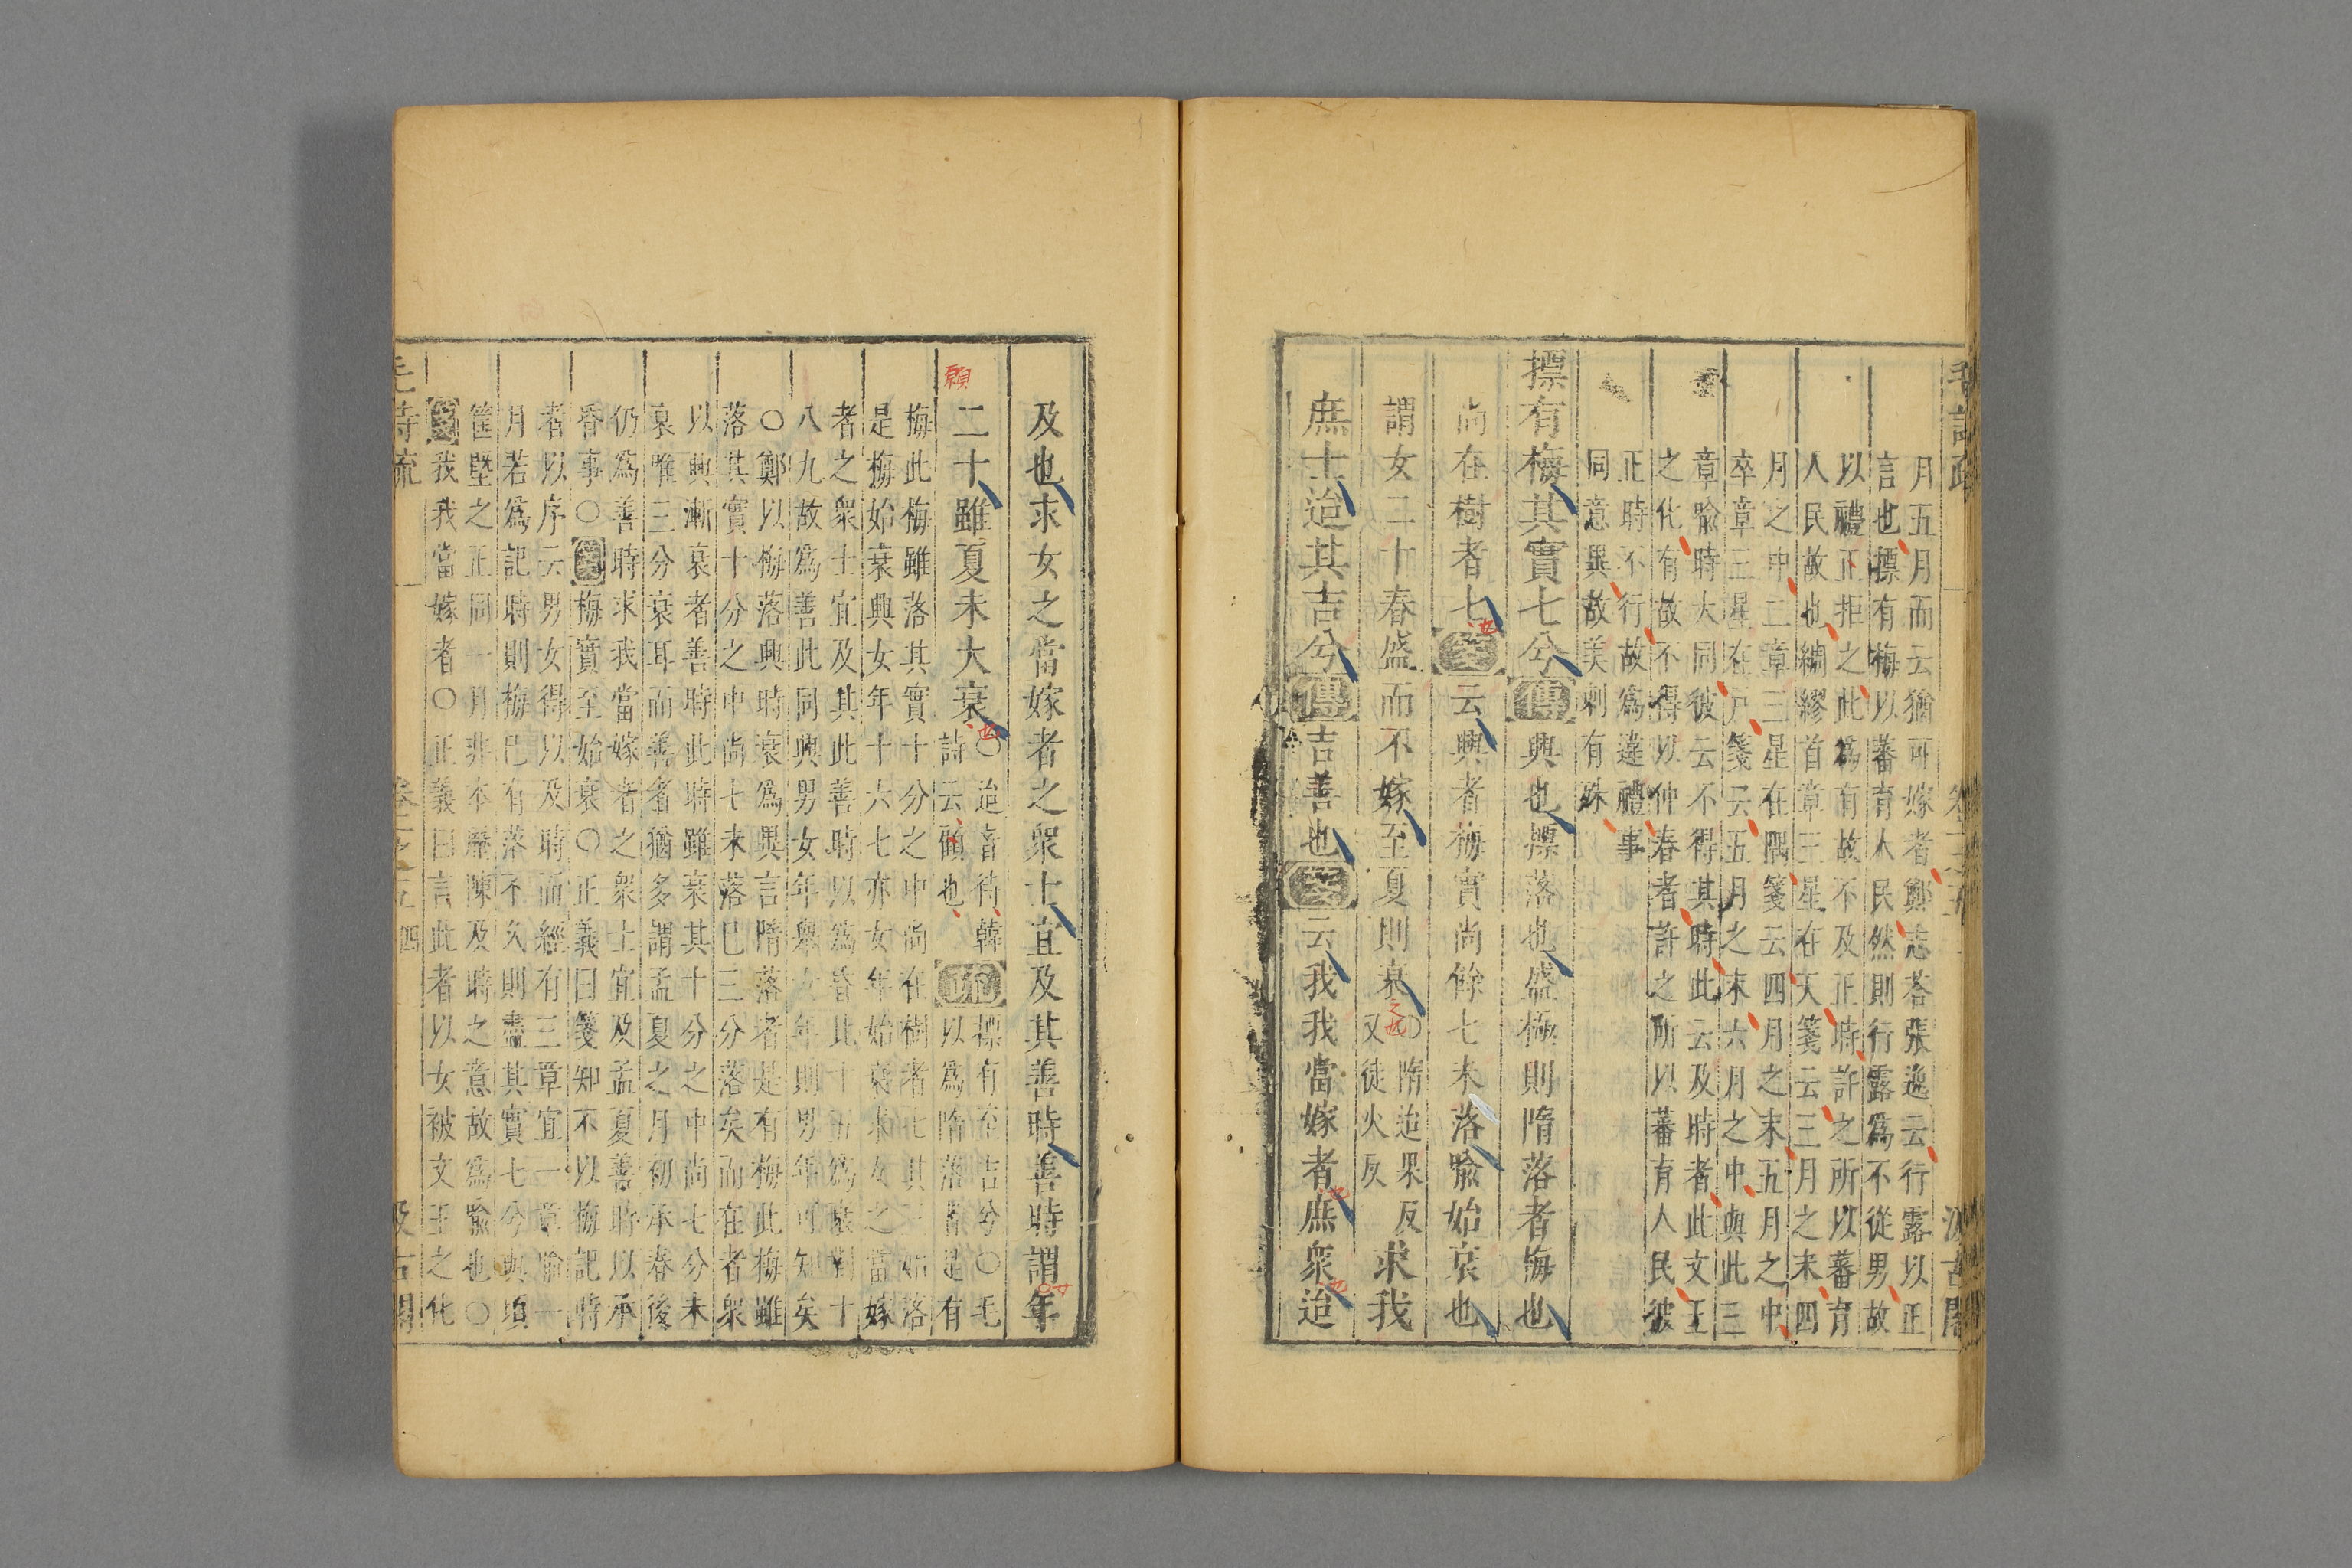 月五月而云猶可嫁者鄭志荅張逸云行露以正
言也摽有梅以蕃育人民然則行露爲不從男故
以禮正拒之此爲有故不及正時許之所以蕃育
人民故也綢繆首章三星在天箋云三月之末四
月之中二章三星在隅箋云四月之末五月之中
卒章三星在户箋云五月之末六月之中與此三
章喻時大同彼云不得其時此云及時者此文王
之化有故不得以仲春者許之所以蕃育人民彼
正時不行故爲違禮事
同意異故美刺有殊
摽有梅其實七兮傳興也摽落也盛極則隋落者梅也
尚在樹者七箋云興者梅實尚餘七未落喻始衰也
謂女二十春盛而不嫁至夏則衰○隋迨果反
又徒火反
求我
庶士迨其吉兮傳吉善也箋云我我當嫁者庶衆迨
及也求女之當嫁者之衆士宜及其善時善時謂年
二十雖夏未大衰○迨音待韓
詩云願也
疏摽有至吉兮○毛
以爲隋落者是有
梅此梅雖落其實十分之中尚在樹者七其三始落
是梅始衰興女年十六七亦女年始衰求女之當嫁
者之衆士宜及其此善時以爲昏此十五爲衰對十
八九故爲善此同興男女年舉女年則男年可知矣
○鄭以梅落興時衰爲異言隋落者是有梅此梅雖
落其實十分之中尚七未落已三分落矣而在者衆
以興漸衰者善時此時雖衰其十分之中尚七分未
衰唯三分衰耳而善者猶多謂孟夏之月初承春後
仍爲善時求我當嫁者之衆士宜及孟夏善時以承
昏事○箋梅實至始衰○正義曰箋知不以梅記時
者以序云男女得以及時而經有三章宜一章喻一
月若爲記時則梅已有落不久則盡其實七兮與頃
筐塈之正同一月非本歷陳及時之意故爲喻也○
箋我我當嫁者○正義曰言此者以女被文王之化